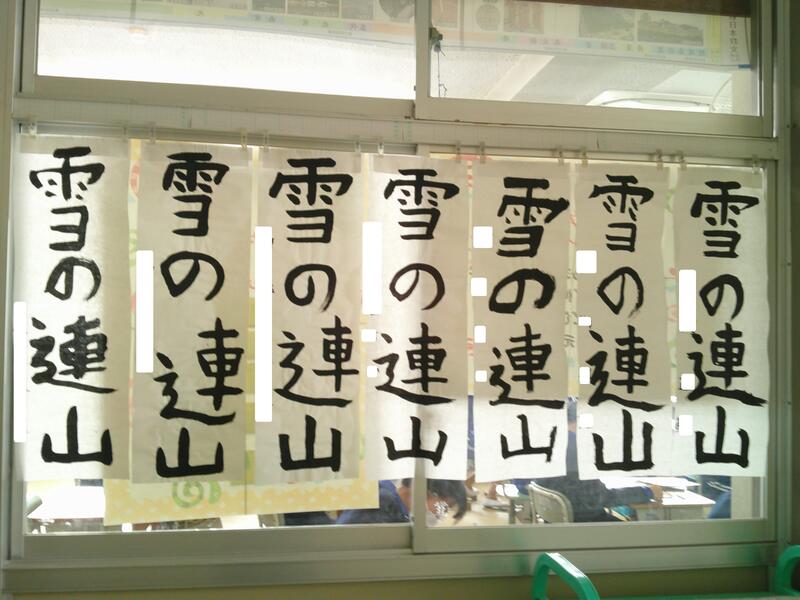 雪の連山
雪の連山
雪の連山
雪の連山
雪の連山
雪の連山
雪の連山